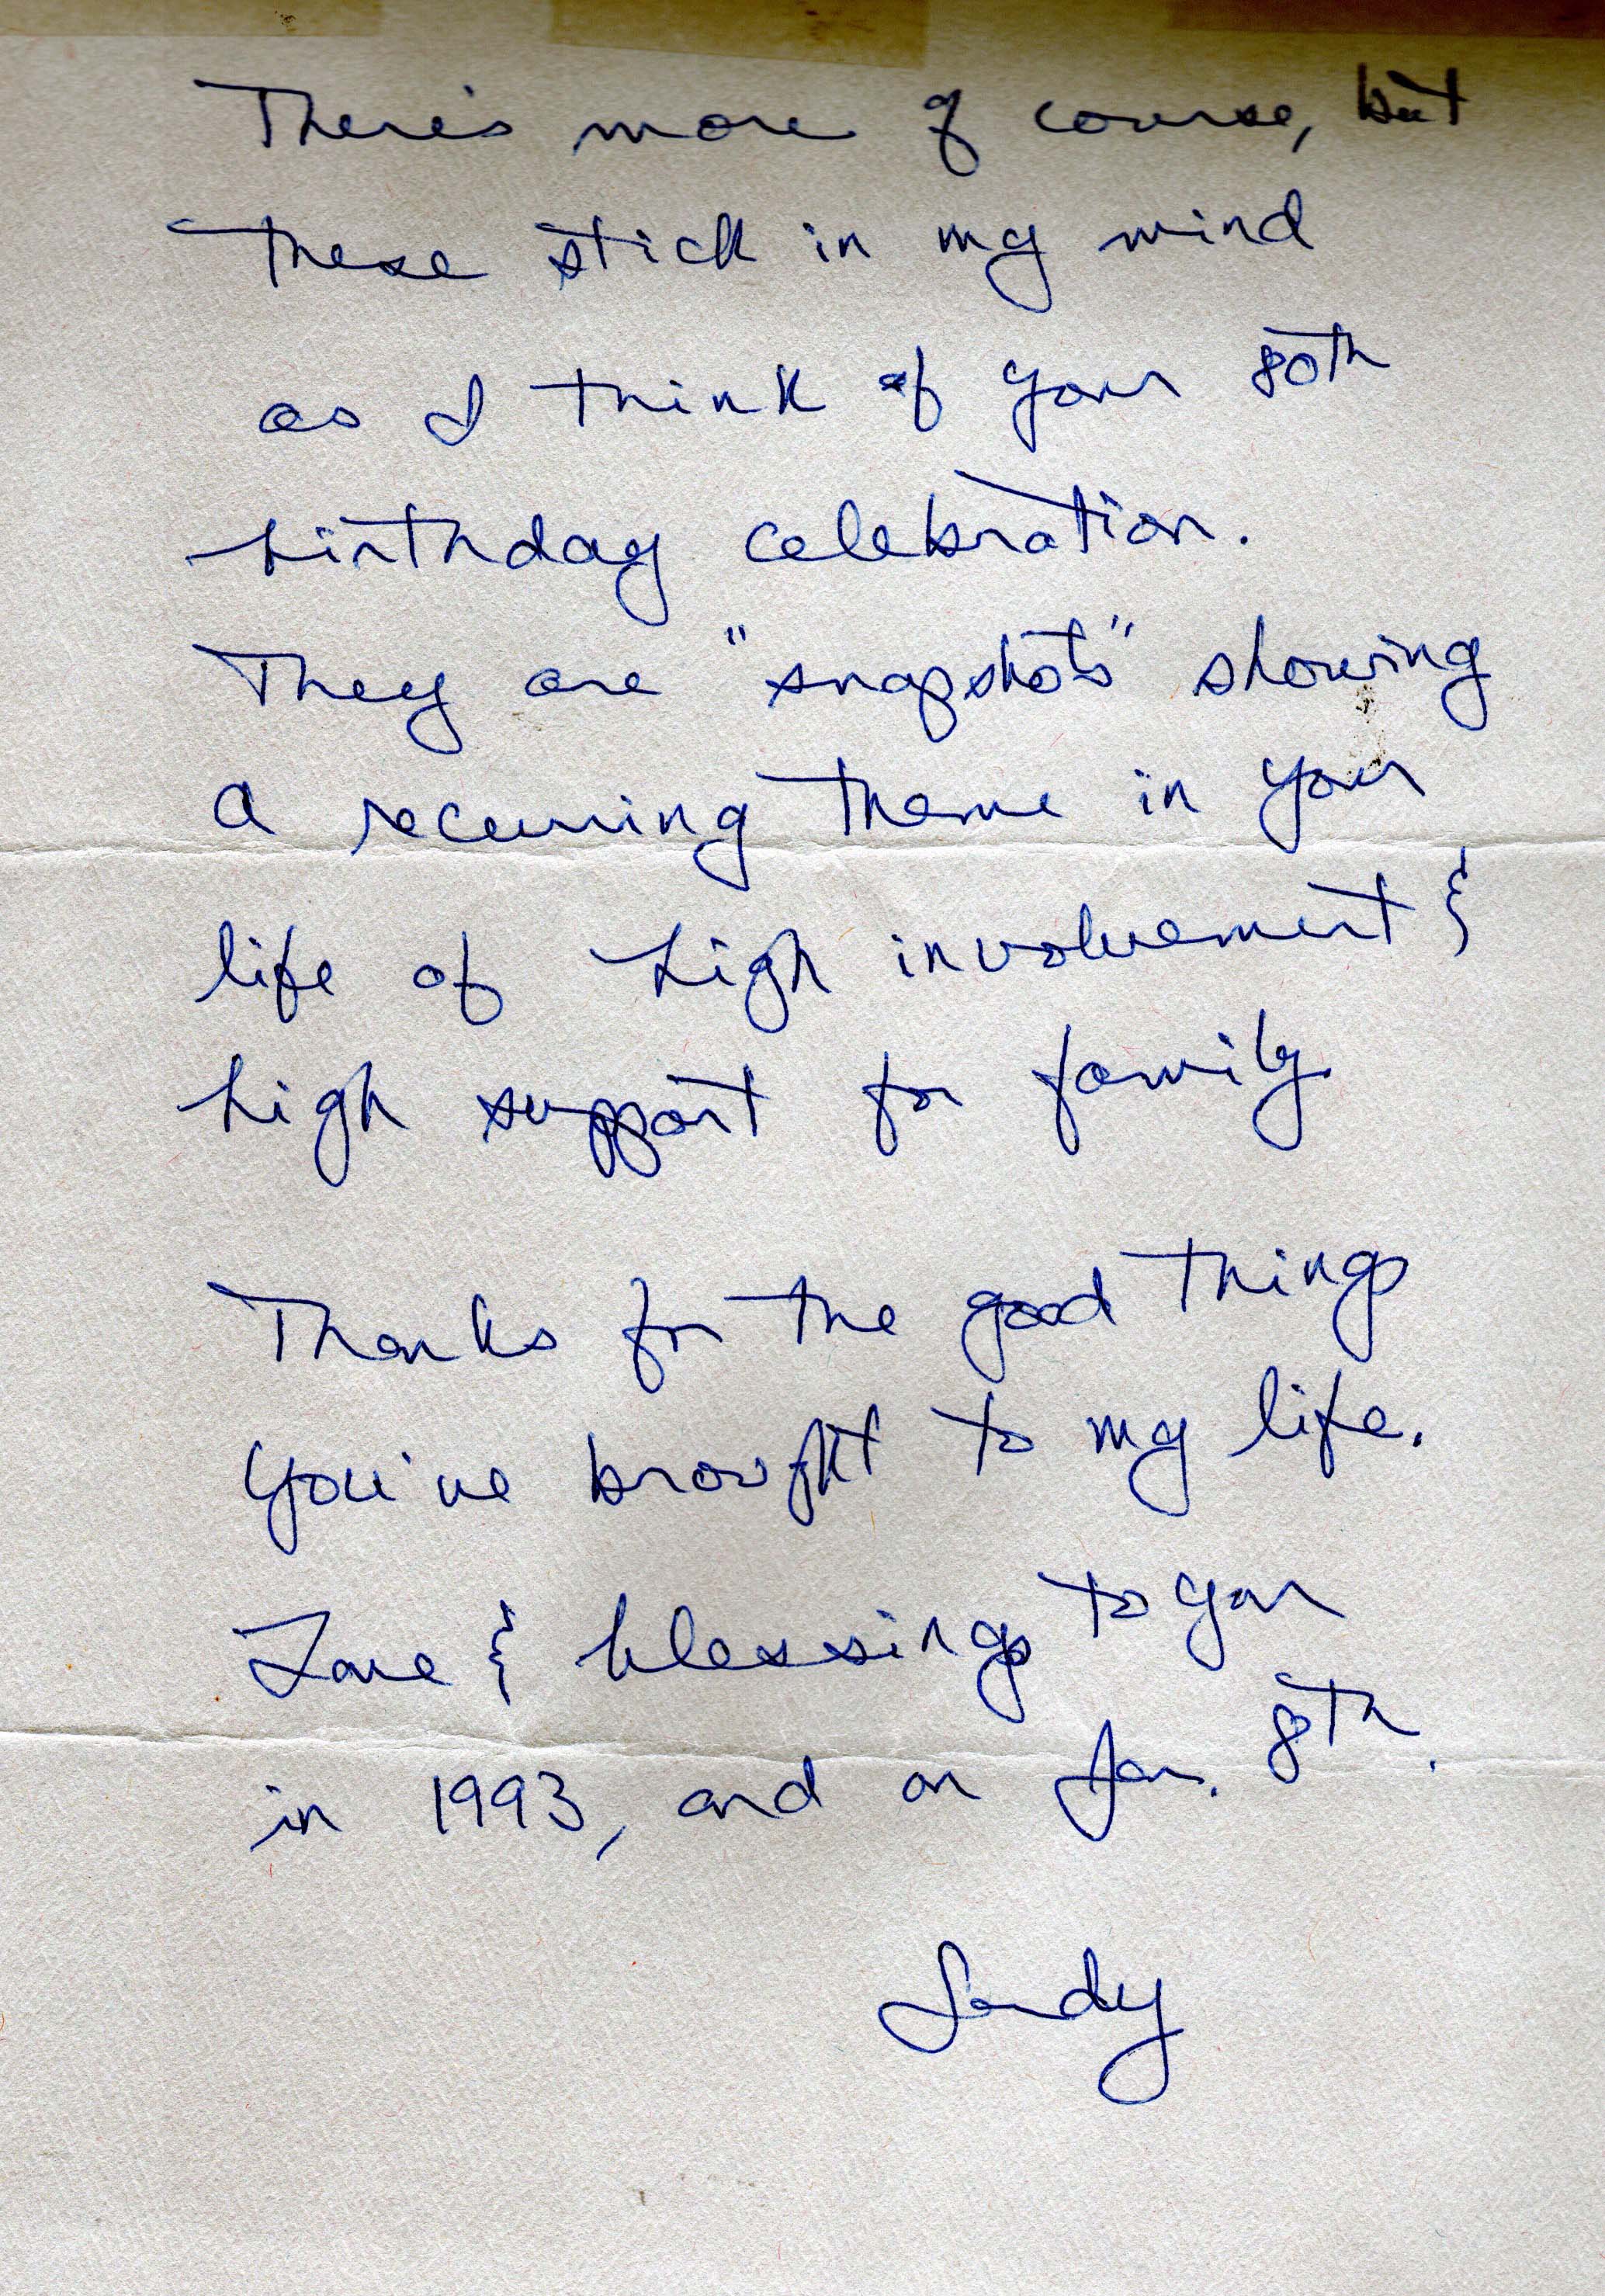 There's more of course, but
these stick in my mind
as I think of your 80th
birthday celebration.
They are "snapshots" showing
a recurring theme in your
life of high involvement &
high support for family.
Thanks for the good things
you've brought to my life.
Love & blessings to you
in 1993, and on Jan. 8th.
Sandy